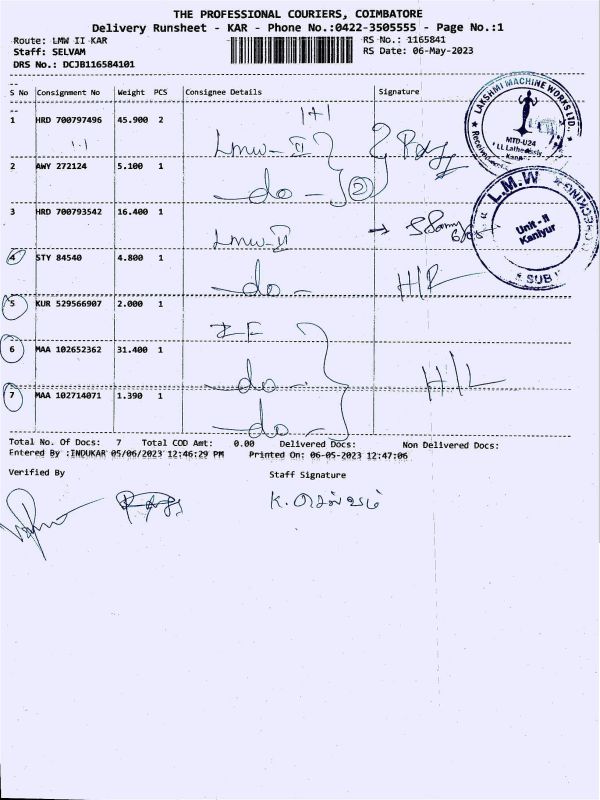 THE PROFESSIONAL COURIERS, COIMBATORE
Delivery Runsheet - KAR - Phone No.:0422-3505555 - Page No.:1
Route: LMW II KAR
RS No.: 1165841
Staff: SELVAM
RS Date: 06-May-2023
DRS No.: DCJB116584101
S No Consignment No Weight PCS Consignee Details Signature
1+1
1 HRD 700797496 45.900 2
1.1
Lmw-II
2 AWY 272124 5.100 1
do - 2
3 HRD 700793542 16.400 1
Lmw-II
4 STY 84540 4.800 1
do -
5 KUR 529566907 2.000 1
6 MAA 102652362 31.400 1
do -
7 MAA 102714071 1.390 1
do -
LAKSHMI MACHINE WORKS LTD.,
MTD-U24
L.M.W
Unit - II
Kaniyur
SUB
Total No. Of Docs: 7 Total COD Amt: 0.00 Delivered Docs: Non Delivered Docs:
Entered By :INDUKAR 05/06/2023 12:46:29 PM Printed On: 06-05-2023 12:47:06
Verified By Staff Signature